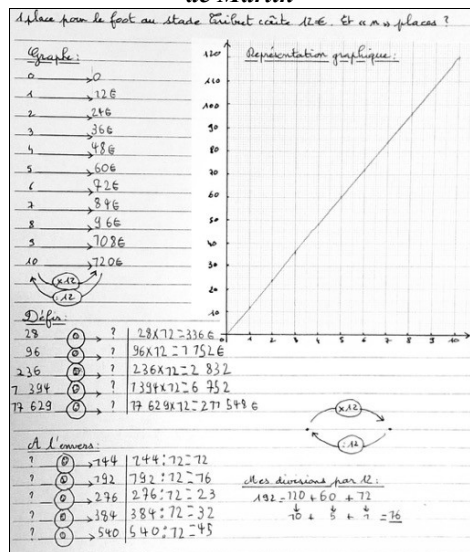 de Martin
1 place pour le foot au stade Tribut coûte 12€. Et « n » places ?
Graphe :
0 → 0
1 → 12€
2 → 24€
3 → 36€
4 → 48€
5 → 60€
6 → 72€
7 → 84€
8 → 96€
9 → 108€
10 → 120€
×12
:12
Représentation graphique :
120
110
100
90
80
70
60
50
40
30
20
10
0 1 2 3 4 5 6 7 8 9 10
Défis :
28 → ? | 28×12=336€
96 → ? | 96×12=1 152€
236 → ? | 236×12=2 832
1 394 → ? | 1394×12=6 752
17 629 → ? | 17 629×12=211 548€
×12
:12
A l'envers :
? → 144 | 144:12=12
? → 192 | 192:12=16
? → 276 | 276:12=23
? → 384 | 384:12=32
? → 540 | 540:12=45
Mes divisions par 12 :
192=120+60+12
10 + 5 + 1 =16